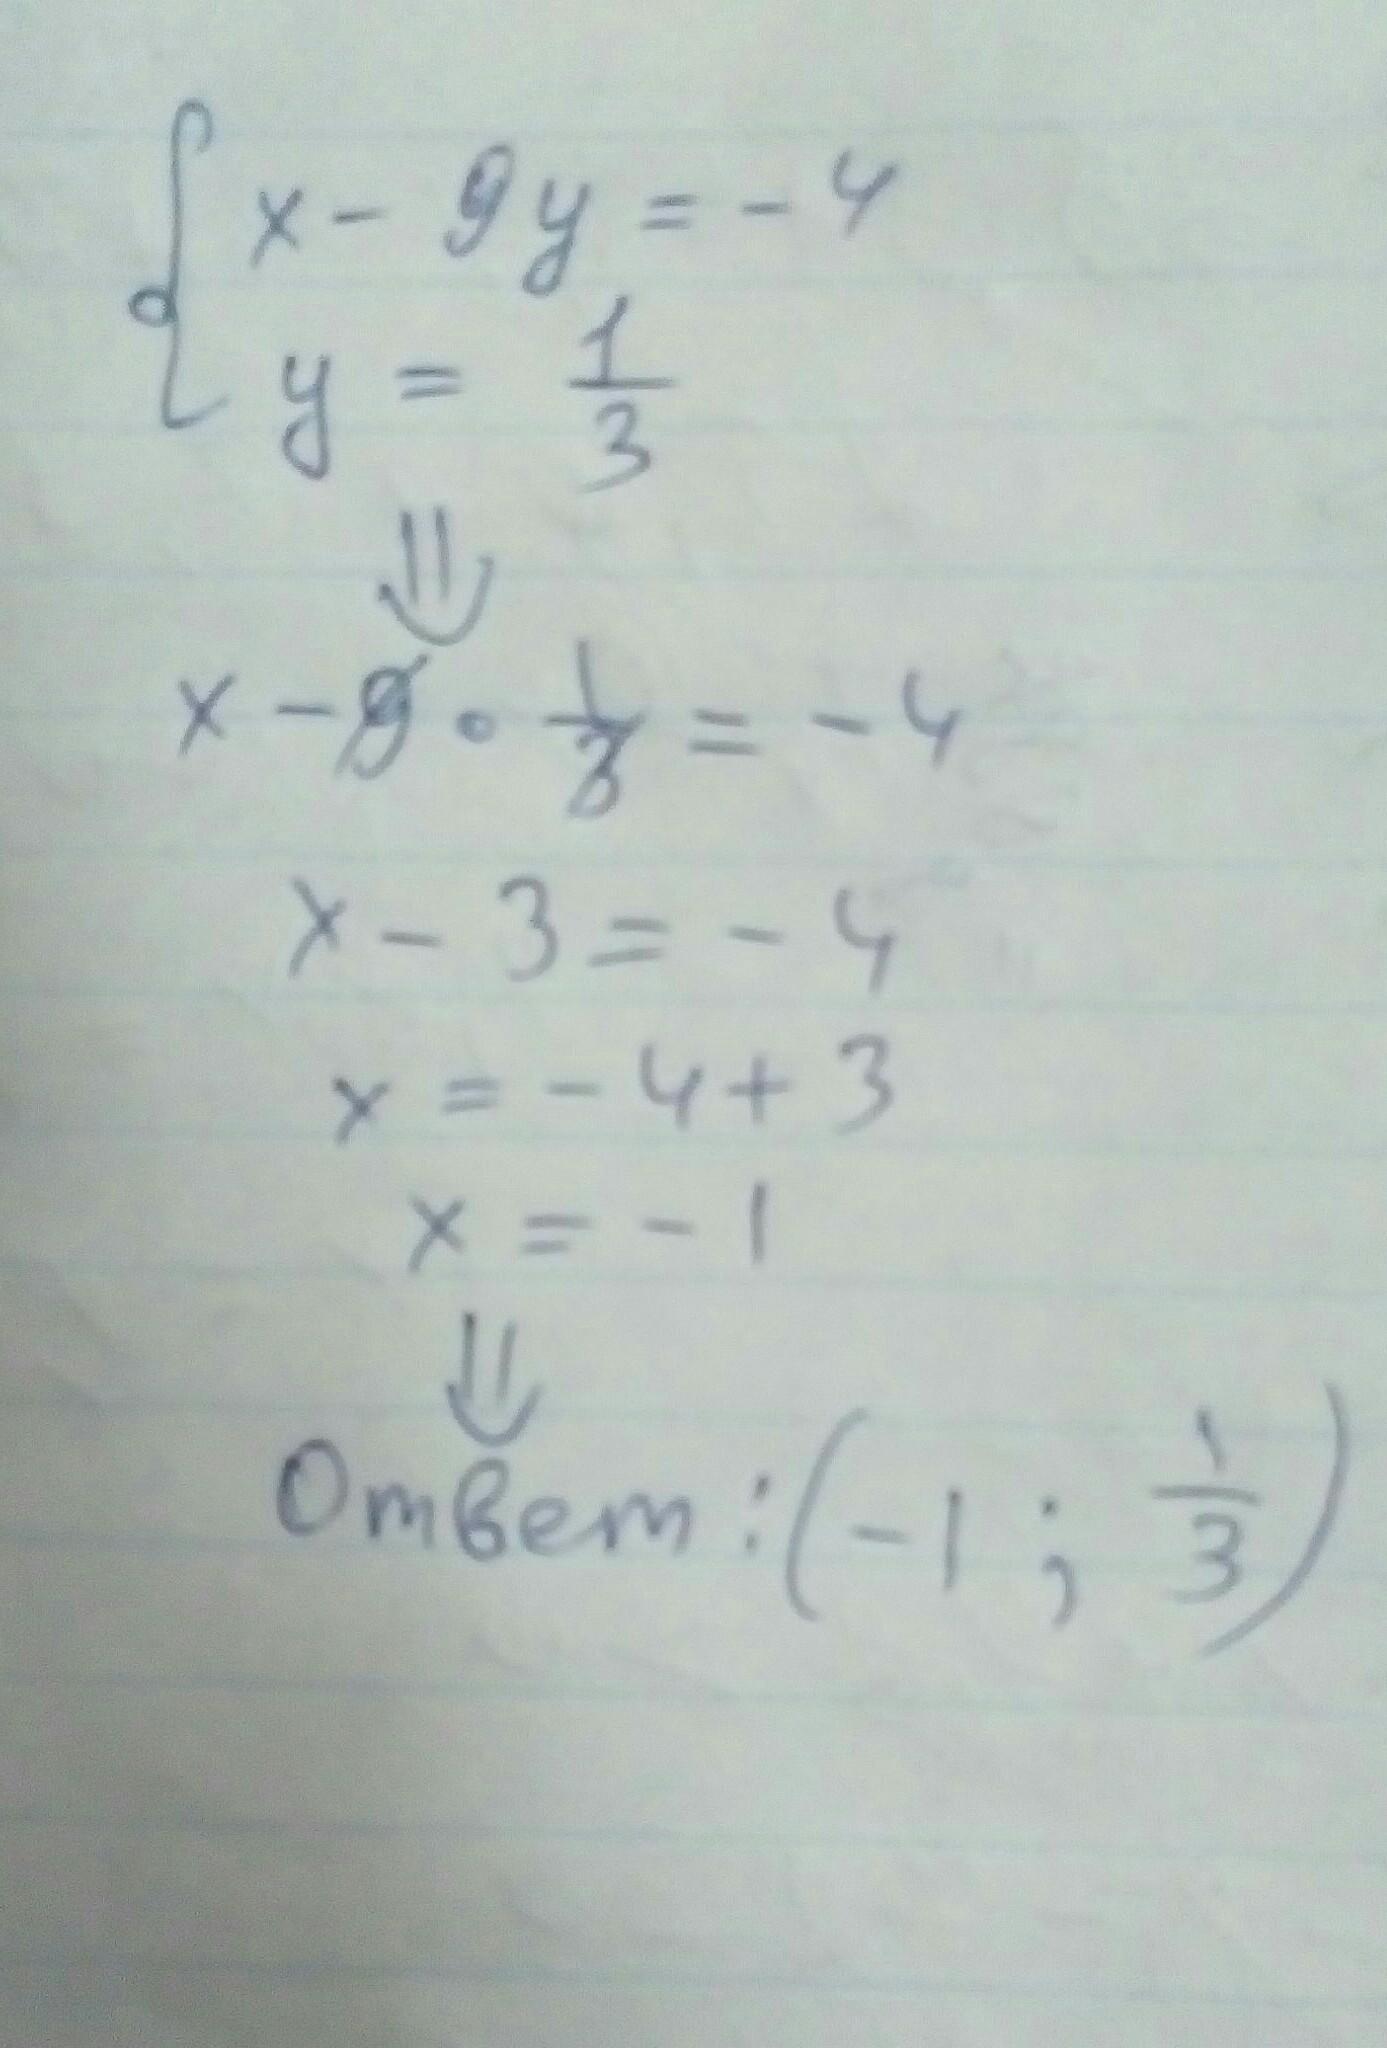 x - 9y = -4
y = 1/3
⇓
x - 9 · 1/3 = -4
x - 3 = -4
x = -4 + 3
x = -1
⇓
Ответ: (-1; 1/3)